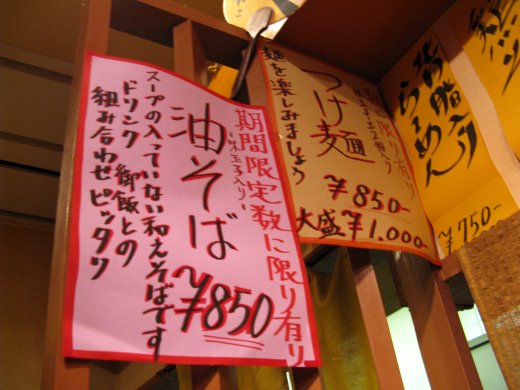 背脂入り
らーめん
¥750-
数に限り有り
味玉子1ヶ入り
つけ麺
麺を楽しみましょう
¥850-
大盛¥1,000-
期間限定数に限り有り
味玉子入り
油そば
¥850
スープの入っていない和えそばです
ドリンク 御飯との
組み合わせピッタリ